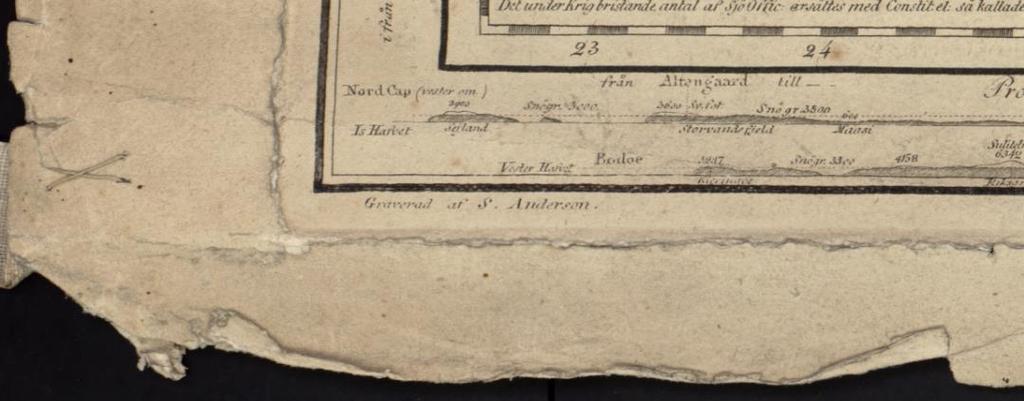 Det under Krig bristande antal af Sjö Offic. ersättes med Constit et. så kallade
i från
23 24
från Altengaard till
Nord Cap (vester om.)
2900 Snögr. 3000. 3600 Sv. fot Snögr 3500 600
Is Hafvet Sejland Storvandsfjeld Maasi
Bodöe 3237 Snögr. 3300 4158 Sulitel
6342
Vester Hafvet
Graverad af S. Anderson.